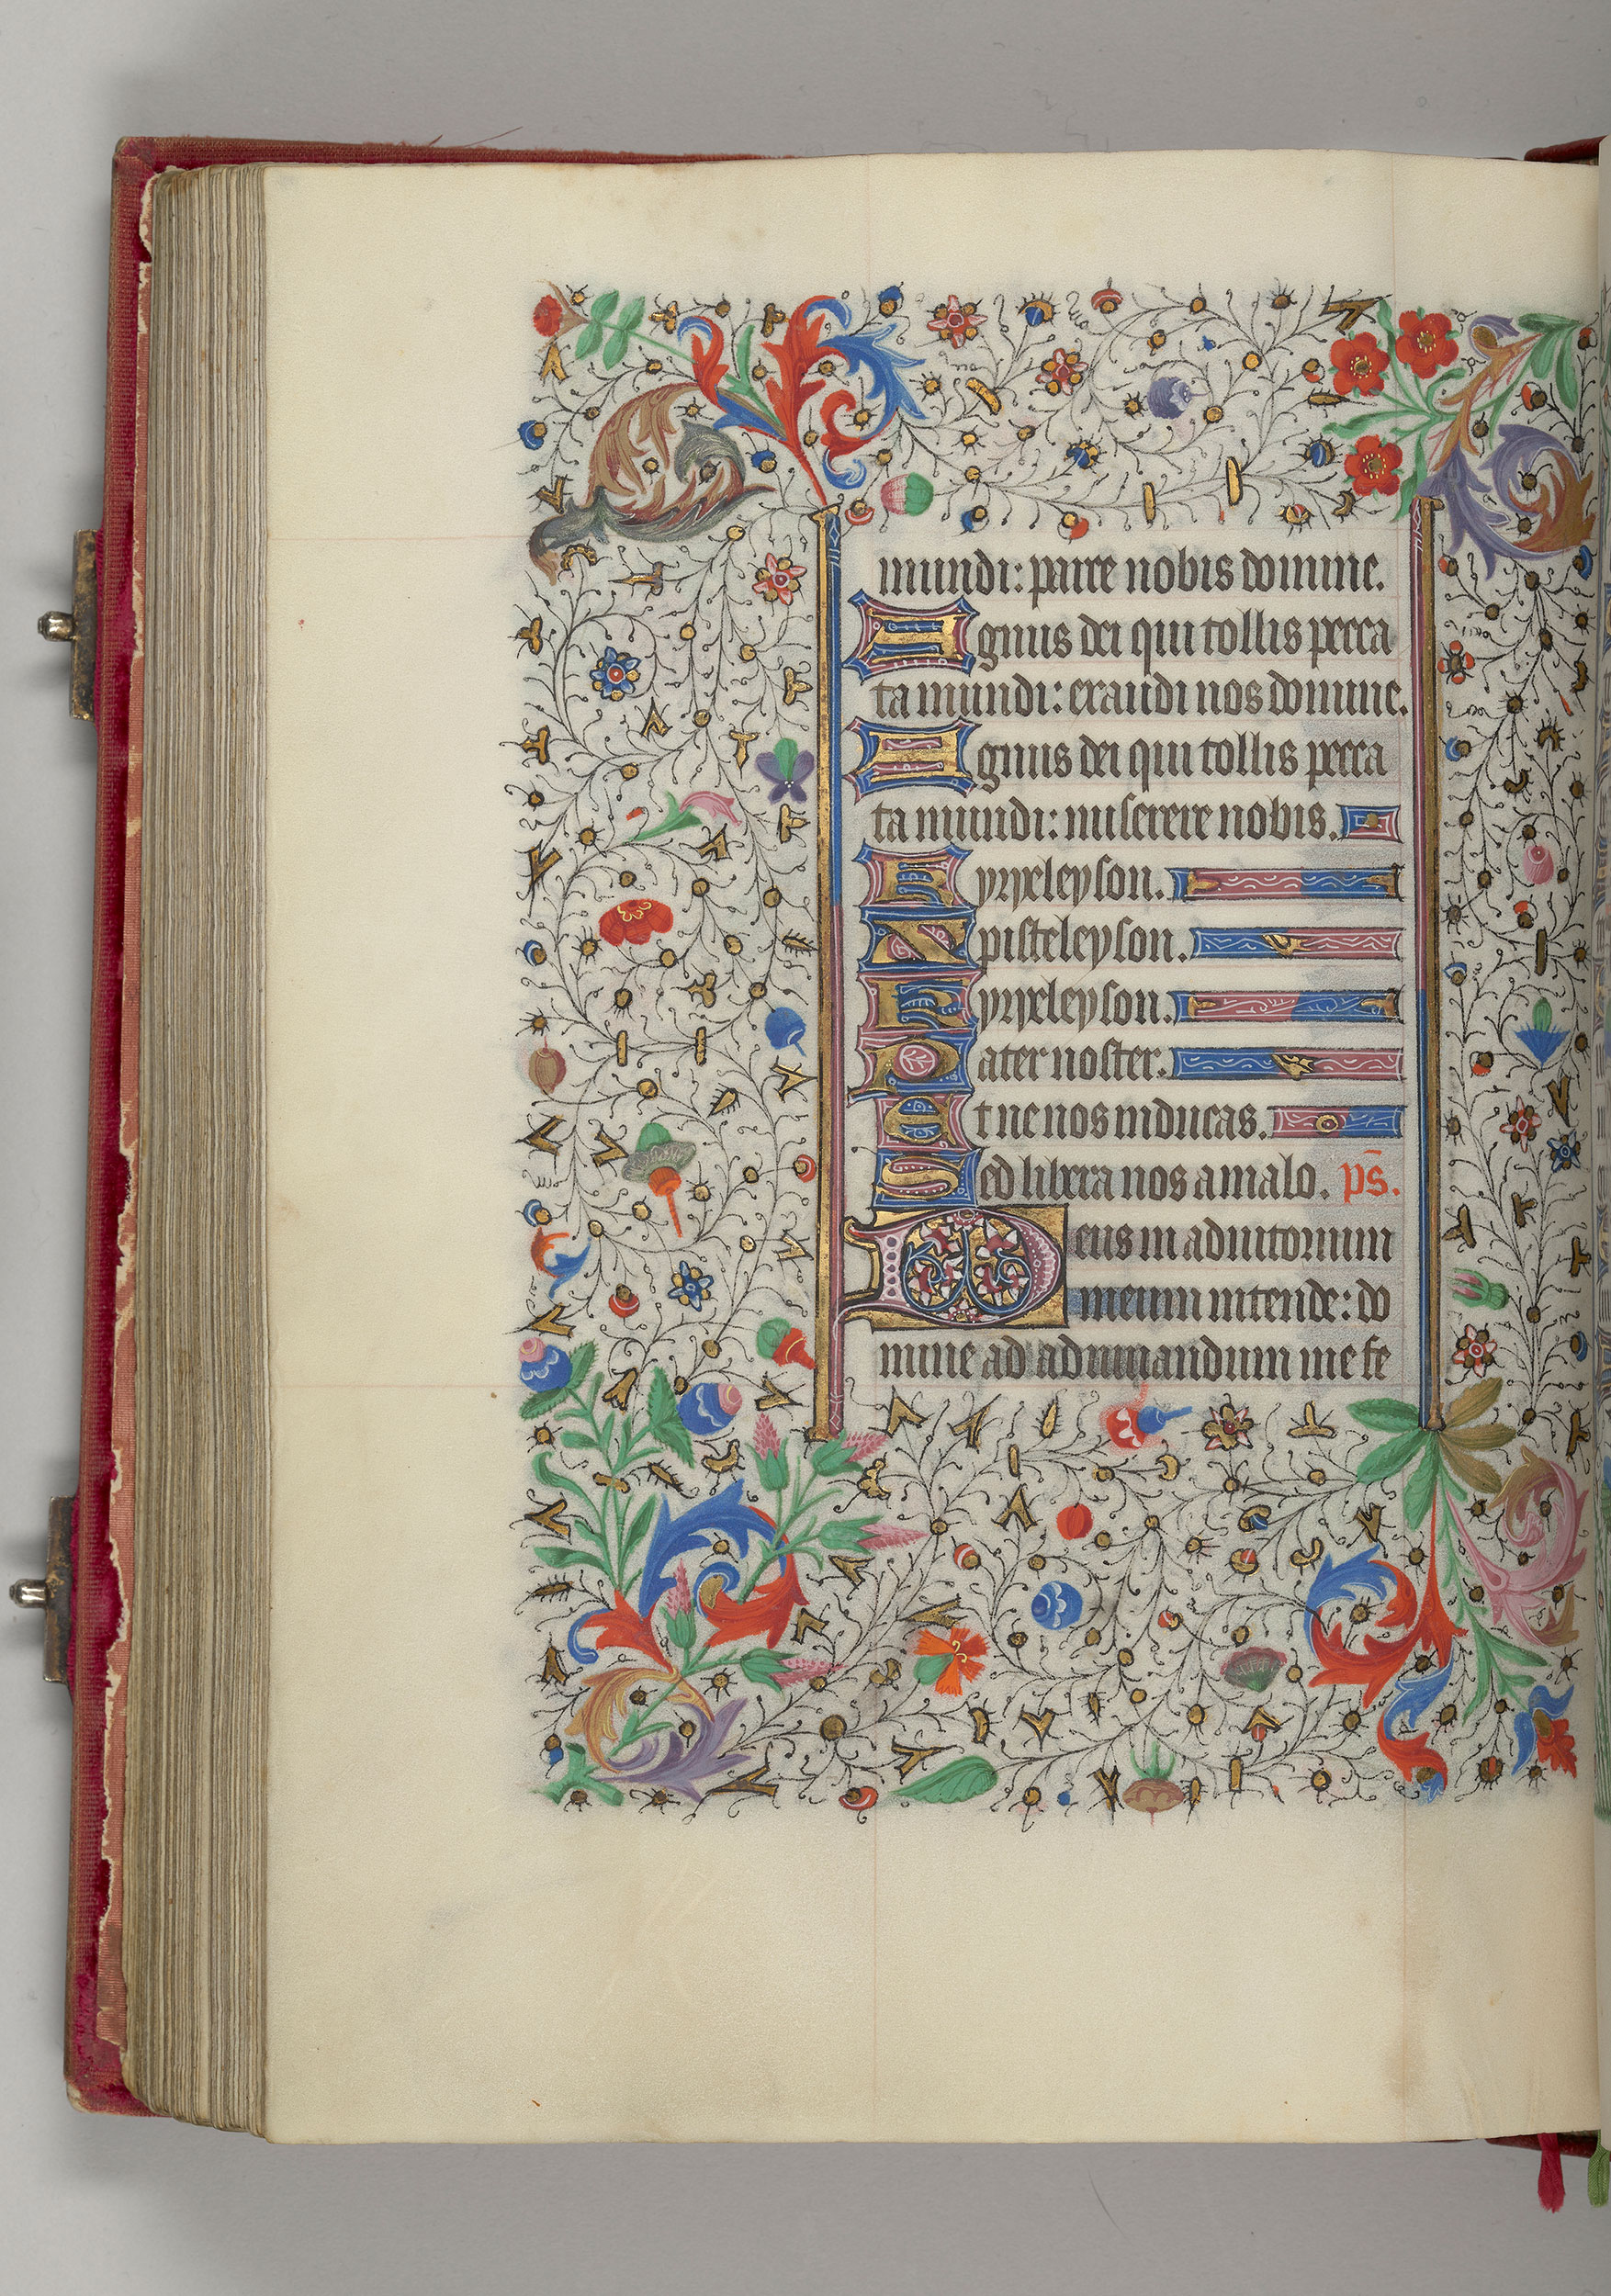 mundi: parce nobis domine.
Agnus dei qui tollis pecca
ta mundi: exaudi nos domine.
Agnus dei qui tollis pecca
ta mundi: miserere nobis.
Kyrieleyson.
Xpisteleyson.
Kyrieleyson.
Pater noster.
Et ne nos inducas.
Sed libera nos a malo. ps̄.
Deus in adiutorium
meum intende: do
mine ad adiuuandum me fe